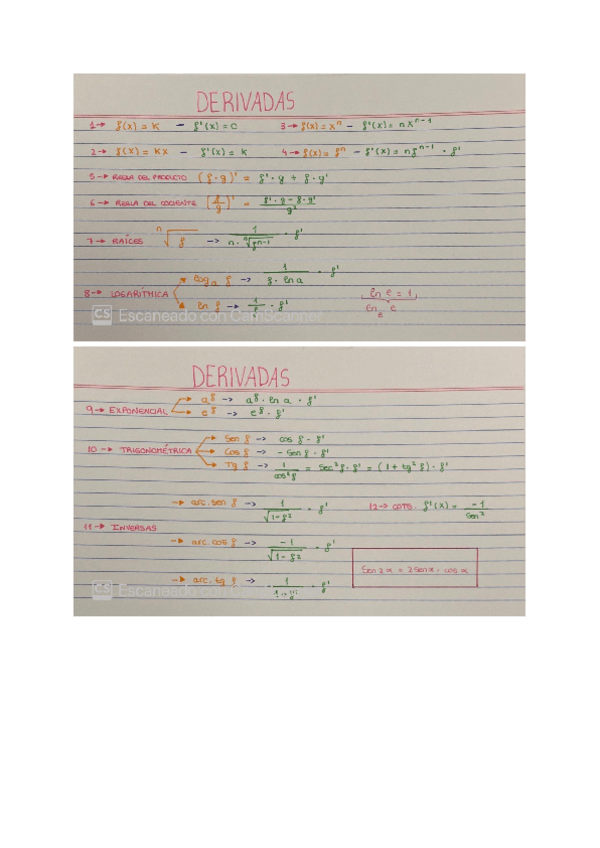 DERIVADAS
1→ f(x) = K – f'(x) = 0 3→ f(x) = xⁿ – f'(x) = nxⁿ⁻¹
2→ f(x) = Kx – f'(x) = K 4→ f(x) = fⁿ – f'(x) = nfⁿ⁻¹ · f'
5→ REGLA DEL PRODUCTO (f·g)' = f'·g + f·g'
6→ REGLA DEL COCIENTE (f/g)' = (f'·g – f·g')/g²
7→ RAÍCES ⁿ√f –> 1/(n·ⁿ√fⁿ⁻¹) · f'
8→ LOGARÍTMICA
logₐ f –> 1/(f·ln a) · f'
ln f –> 1/f · f'
ln e = 1
ln e
e
CS Escaneado con CamScanner
DERIVADAS
9→ EXPONENCIAL
a^f –> a^f · ln a · f'
e^f –> e^f · f'
10→ TRIGONOMÉTRICA
Sen f –> cos f · f'
Cos f –> – sen f · f'
Tg f –> 1/cos²f = sec²f·f' = (1 + tg²f)·f'
11→ INVERSAS
→ arc.sen f –> 1/√(1–f²) · f'
→ arc.cos f –> –1/√(1–f²) · f'
→ arc.tg f –> 1/(1+f²) · f'
12→ COTG. f'(x) = –1/sen²
Sen 2x = 2 sen x · cos x
CS Escaneado con CamScanner